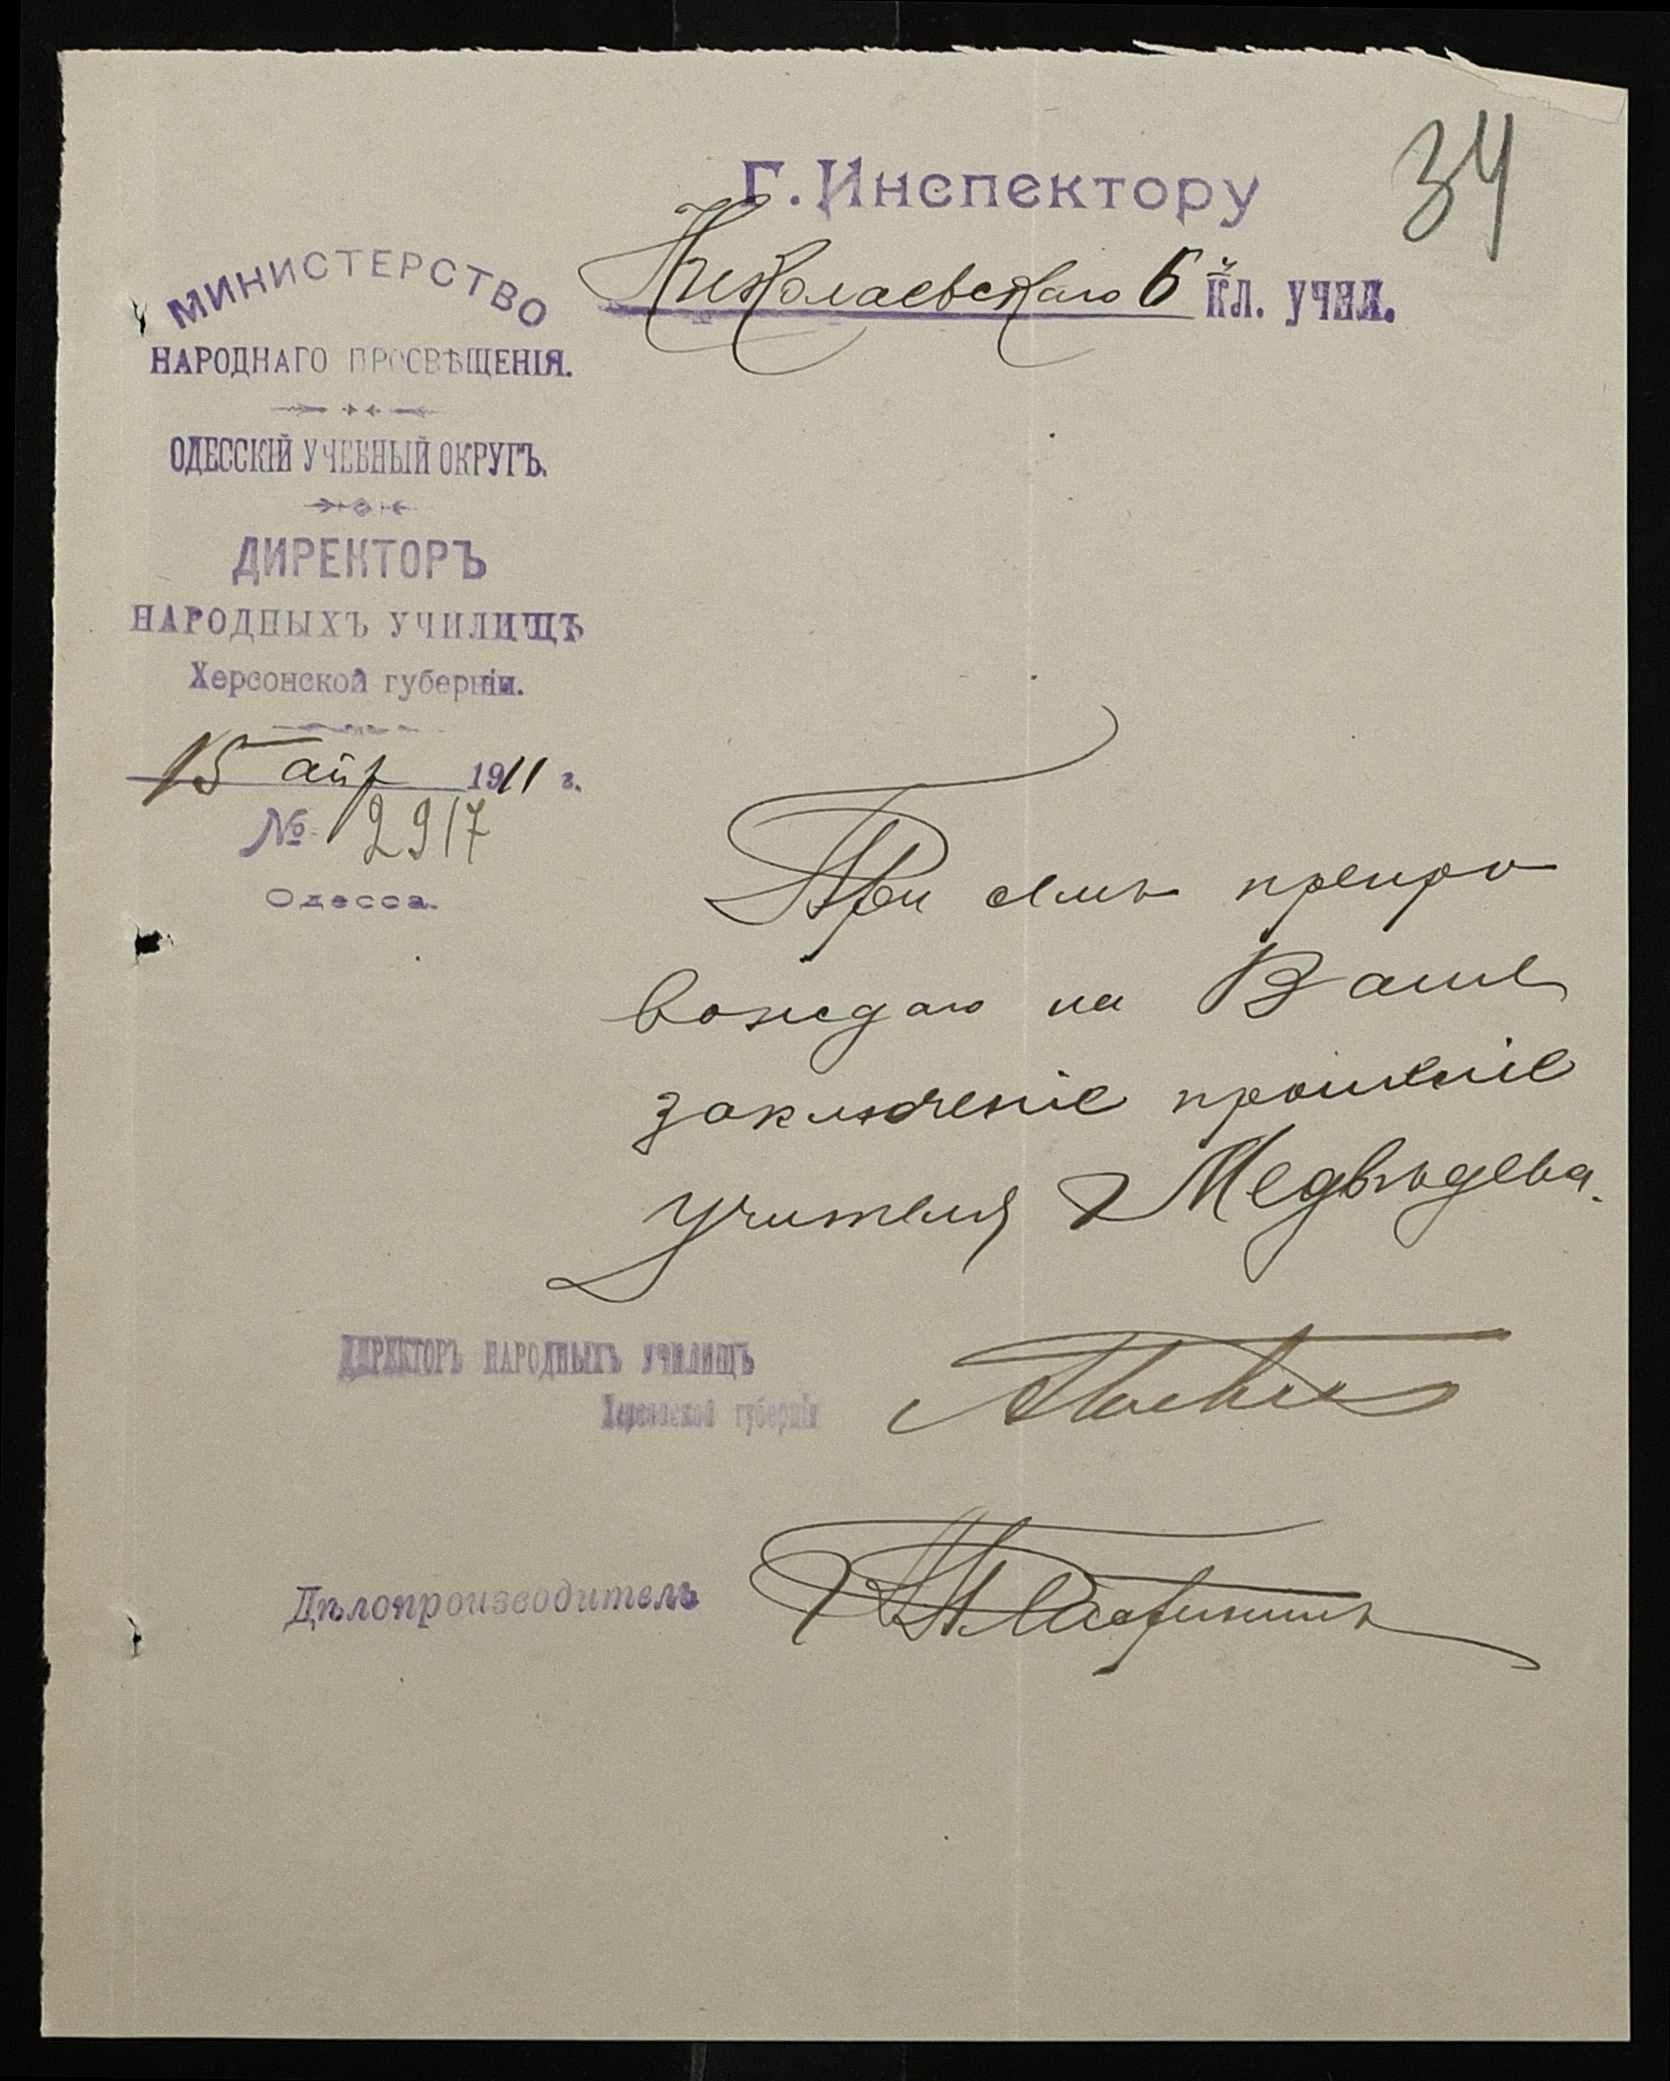 34
Г. Инспектору
Николаевскаго 6 кл. учил.
МИНИСТЕРСТВО
НАРОДНАГО ПРОСВѢЩЕНІЯ.
ОДЕССКІЙ УЧЕБНЫЙ ОКРУГЪ.
ДИРЕКТОРЪ
НАРОДНЫХЪ УЧИЛИЩЪ
Херсонской губерніи.
15 апр 1911 г.
№ 2917
Одесса.
При семъ препро
вождаю на Ваше
заключеніе прошеніе
учителя Медвѣдева.
ДИРЕКТОРЪ НАРОДНЫХЪ УЧИЛИЩЪ
Херсонской губерніи
Дѣлопроизводитель